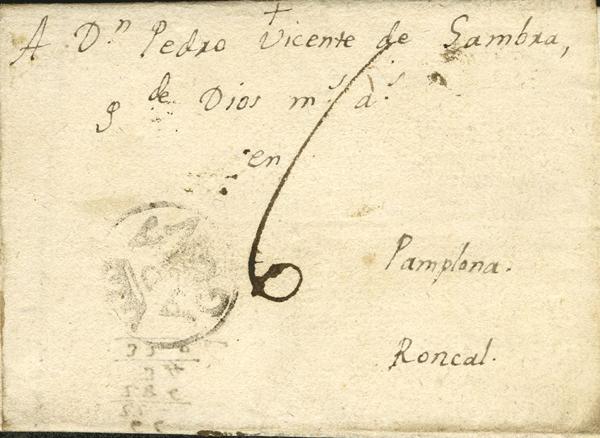 +
A D.ⁿ Pedro Vicente de Gambra,
g de Dios m.ˢ a.ˢ
en
6
Pamplona.
Roncal.